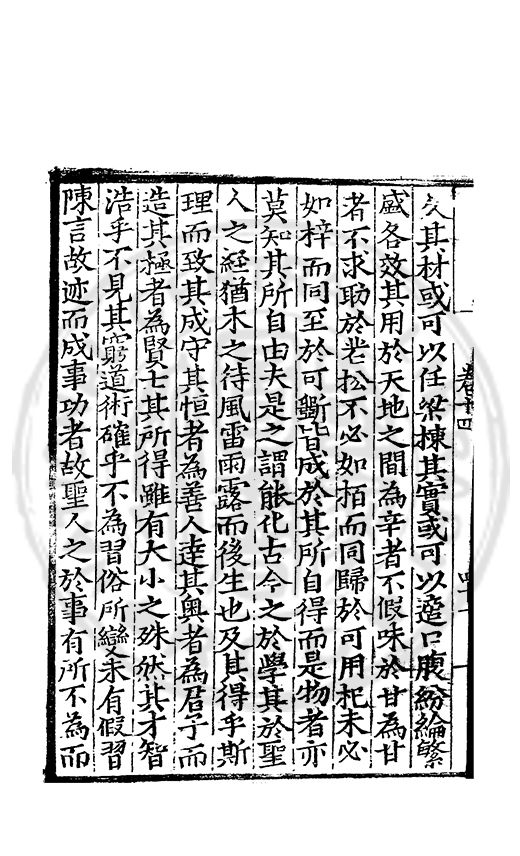 久其材或可以任梁棟其實或可以適口腹紛綸繁
盛各效其用於天地之間為辛者不假味於甘為甘
者不求助於老松不必如栢而同歸於可用杞未必
如梓而同至於可斵皆成於其所自得而是物者亦
莫知其所自由夫是之謂能化古今之於學其於聖
人之經猶木之待風雷雨露而後生也及其得乎斯
理而致其成守其恒者為善人逹其奥者為君子而
造其極者為賢士其所得雖有大小之殊然其才智
浩乎不見其窮道術確乎不為習俗所變未有假習
陳言故迹而成事功者故聖人之於事有所不為而
卷十四